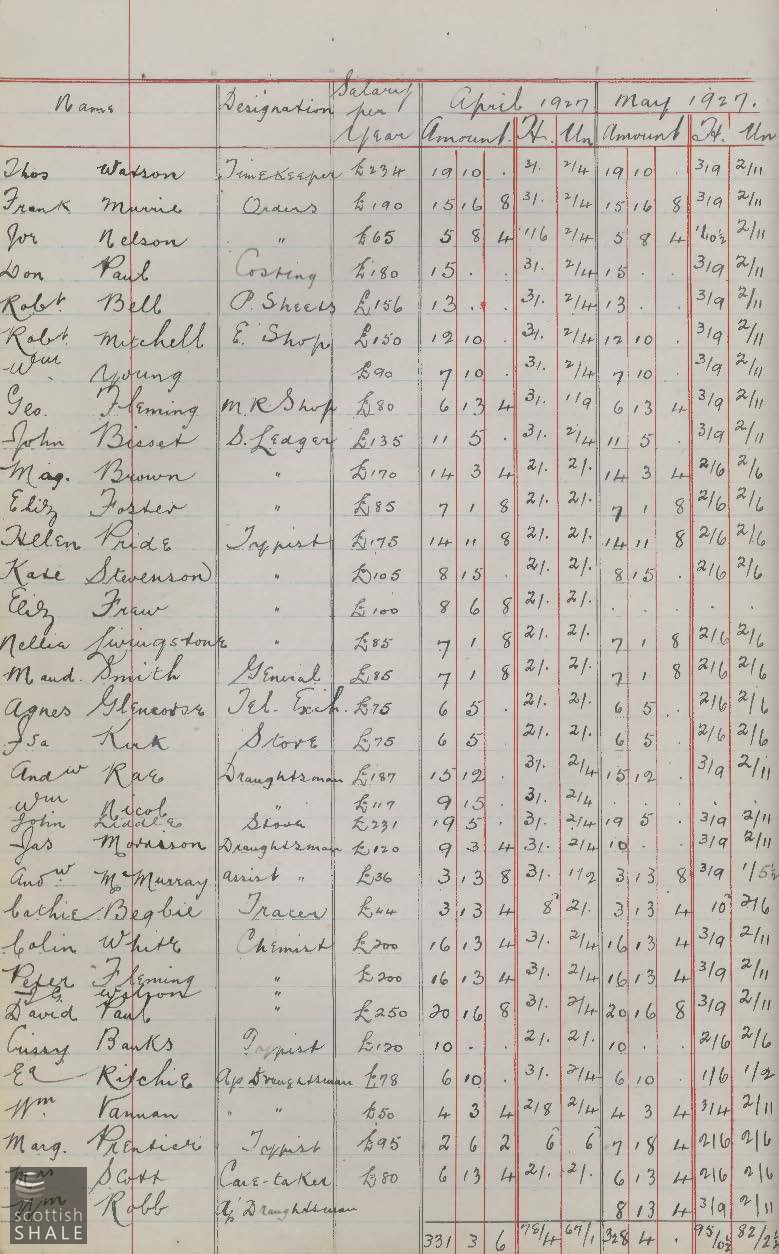 Name Designation Salary per Year April 1927 May 1927.
Amount. H. Un Amount H. Un
Thos Watson Timekeeper £234 19 10 . 3/. 2/4 19 10 . 3/9 2/11
Frank Murrie Orders £190 15 16 8 3/. 2/4 15 16 8 3/9 2/11
Jos Nelson " £65 5 8 4 1/6 2/4 5 8 4 1/10½ 2/11
Don Paul Costing £180 15 . . 3/. 2/4 15 . . 3/9 2/11
Robt. Bell P. Sheets £156 13 . . 3/. 2/4 13 . . 3/9 2/11
Robt. Mitchell E. Shop £150 12 10 . 3/. 2/4 12 10 . 3/9 2/11
Wm Young £90 7 10 . 3/. 2/4 7 10 . 3/9 2/11
Geo. Fleming M.R Shop £80 6 13 4 3/. 1/9 6 13 4 3/9 2/11
John Bisset S. Ledger £135 11 5 . 3/. 2/4 11 5 . 3/9 2/11
Mag. Brown " £170 14 3 4 2/. 2/. 14 3 4 2/6 2/6
Eliz Foster " £85 7 1 8 2/. 2/. 7 1 8 2/6 2/6
Helen Pride Typist £175 14 11 8 2/. 2/. 14 11 8 2/6 2/6
Kate Stevenson " £105 8 15 . 2/. 2/. 8 15 . 2/6 2/6
Eliz Fraw " £100 8 6 8 2/. 2/. . . . . .
Nellie Livingstone " £85 7 1 8 2/. 2/. 7 1 8 2/6 2/6
Maud. Smith General £85 7 1 8 2/. 2/. 7 1 8 2/6 2/6
Agnes Glencorse Tel. Exch. £75 6 5 . 2/. 2/. 6 5 . 2/6 2/6
Isa Kirk Store £75 6 5 . 2/. 2/. 6 5 . 2/6 2/6
Andw Rae Draughtsman £187 15 12 . 3/. 2/4 15 12 . 3/9 2/11
Wm Nicol " £117 9 15 . 3/. 2/4 . . . . .
John Liddle Store £231 19 5 . 3/. 2/4 19 5 . 3/9 2/11
Jas Morrison Draughtsman £120 9 3 4 3/. 2/4 10 . . 3/9 2/11
Andw. McMurray assist " £36 3 13 8 3/. 1/2 3 13 8 3/9 1/5½
Cathie Begbie Tracer £44 3 13 4 8 2/. 3 13 4 10 2/6
Colin White Chemist £200 16 13 4 3/. 2/4 16 13 4 3/9 2/11
Peter Fleming " £200 16 13 4 3/. 2/4 16 13 4 3/9 2/11
Watson "
David Paul " £250 20 16 8 3/. 2/4 20 16 8 3/9 2/11
Cissy Banks Typist £120 10 . . 2/. 2/. 10 . . 2/6 2/6
Ed Ritchie Ap Draughtsman £78 6 10 . 3/. 2/4 6 10 . 1/6 1/2
Wm. Vannan " " £50 4 3 4 2/8 2/4 4 3 4 3/4 2/11
Marg. Prentice Typist £95 2 6 2 6 6 7 18 4 2/6 2/6
Mrs Scott Care-taker £80 6 13 4 2/. 2/. 6 13 4 2/6 2/6
Wm Robb Ap Draughtsman 8 13 4 3/9 2/11
331 3 6 78/4 67/1 328 4 . 95/0½ 82/2½
scottish
SHALE